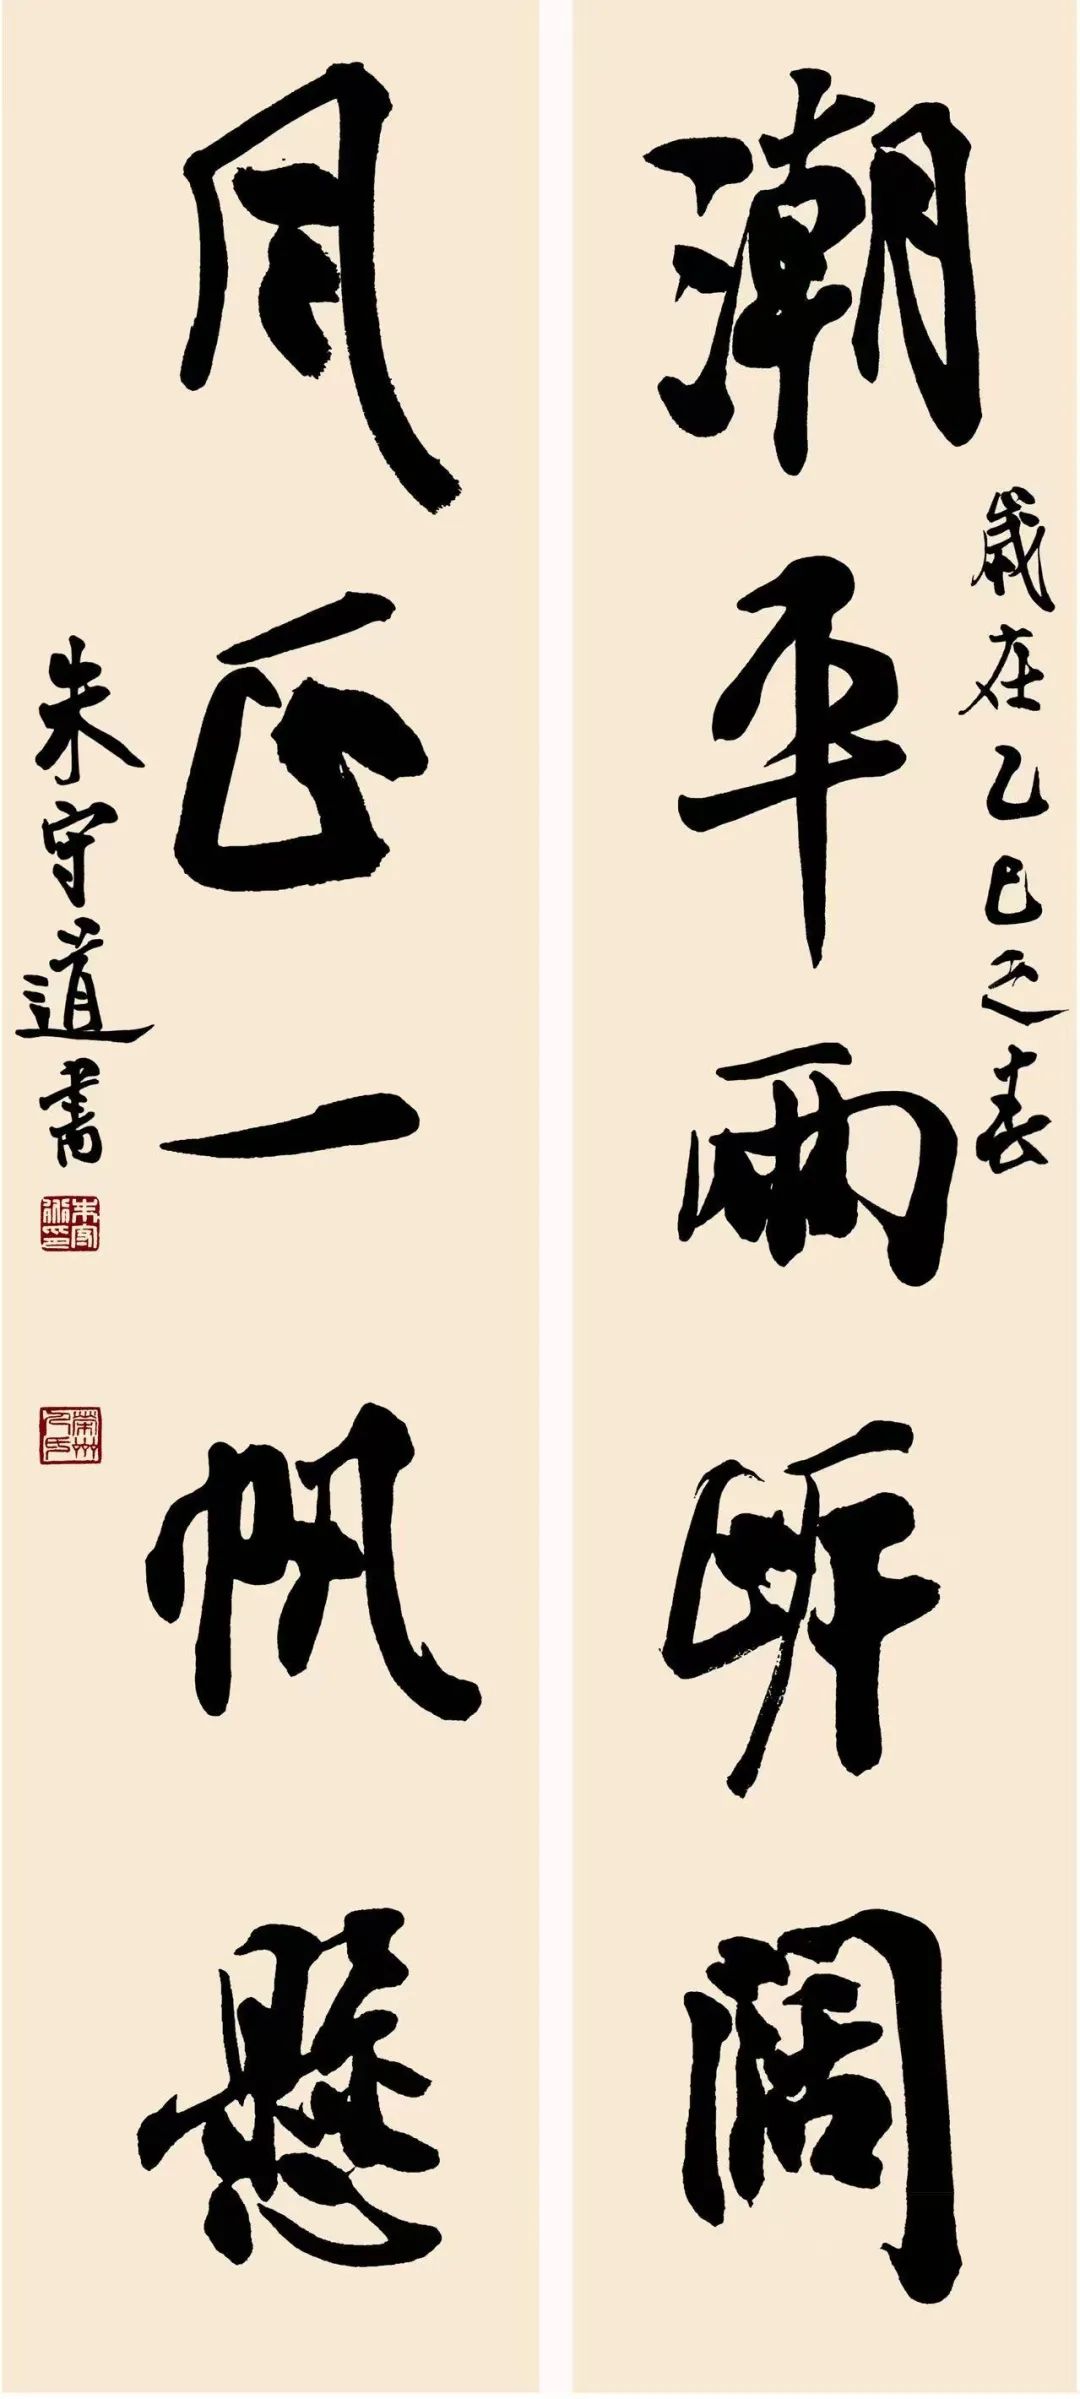 潮平兩岸闊
歲在乙巳之春
風正一帆懸
朱守道書
朱守道印